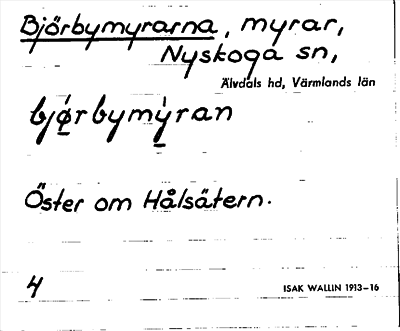 Björbymyrarna, myrar,
Nyskoga sn,
Älvdals hd, Värmlands län
bjǿrbymýran
Öster om Hålsätern.
4
ISAK WALLIN 1913–16